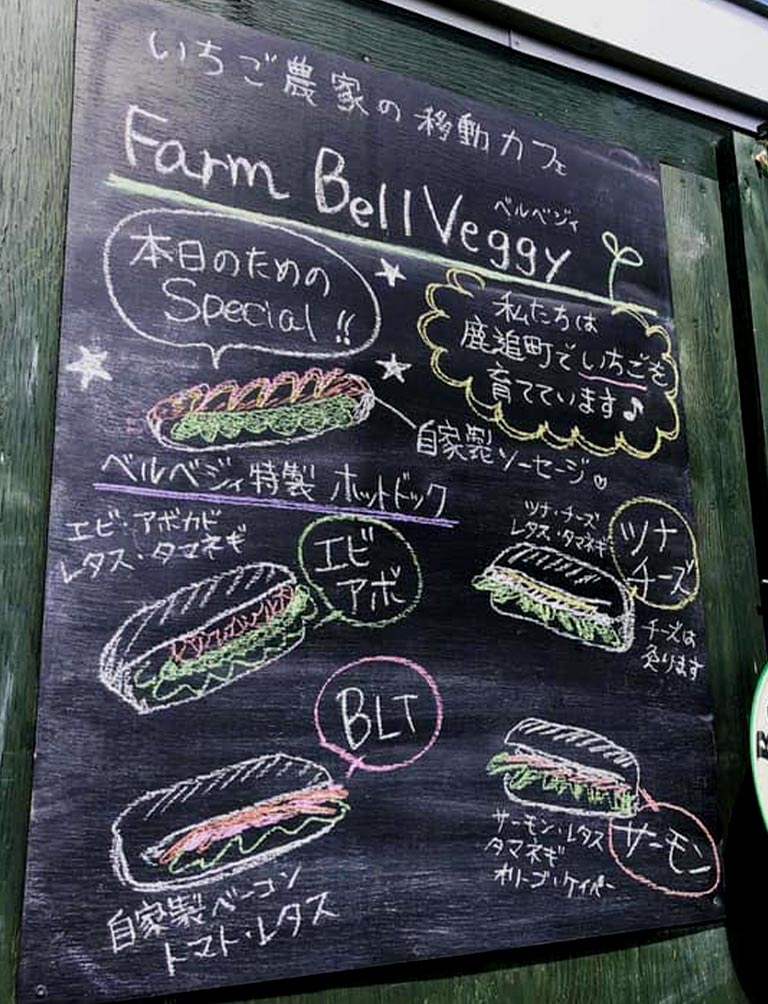 いちご農家の移動カフェ
Farm Bell Veggy
ベルベジィ
本日のための
Special!!
私たちは
鹿追町でいちごを
育てています♪
自家製ソーセージ♡
ベルベジィ特製 ホットドック
エビ・アボカド
レタス・タマネギ
エビ
アボ
ツナ・チーズ
レタス・タマネギ
ツナ
チーズ
チーズは
炙ります
BLT
自家製ベーコン
トマト・レタス
サーモン・レタス
タマネギ
オリーブ・ケイパー
サーモン